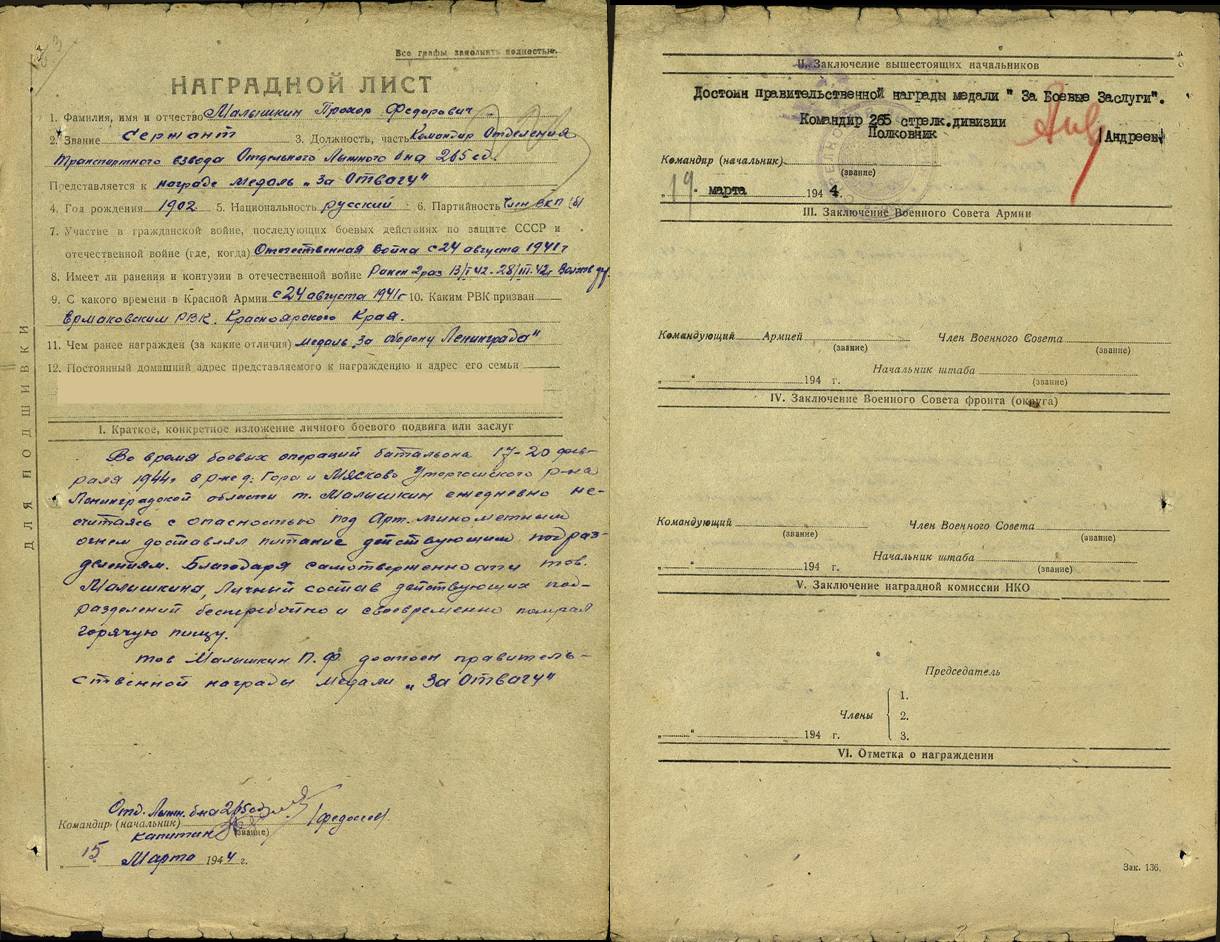 Все графы заполнять полностью.
НАГРАДНОЙ ЛИСТ
1. Фамилия, имя и отчество Малышкин Прохор Федорович
2. Звание Сержант 3. Должность, часть Командир Отделения
транспортного взвода Отдельного Лыжного б-на 265 сд.
Представляется к награде медаль „За Отвагу"
4. Год рождения 1902 5. Национальность русский 6. Партийность Член ВКП(б)
7. Участие в гражданской войне, последующих боевых действиях по защите СССР и
отечественной войне (где, когда) Отечественная война с 24 августа 1941 г
8. Имеет ли ранения и контузии в отечественной войне Ранен 2 раз 13/I 42 - 28/III.42г
9. С какого времени в Красной Армии с 24 августа 1941 г 10. Каким РВК призван
Ермаковским РВК. Красноярского Края.
11. Чем ранее награжден (за какие отличия) медаль „За оборону Ленинграда"
12. Постоянный домашний адрес представляемого к награждению и адрес его семьи
I. Краткое, конкретное изложение личного боевого подвига или заслуг
Во время боевых операций батальона 17-20 фев-
раля 1944г в р-не д. Гора и Мясково Уторгошского р-на
Ленинградской области т. Малышкин ежедневно не-
считаясь с опасностью под Арт. минометным
огнем доставлял питание действующим подраз-
делениям. Благодаря самоотверженности тов.
Малышкина, Личный состав действующих под-
разделений бесперебойно и своевременно
горячую пищу.
тов Малышкин П.Ф достоен правитель-
ственной награды медали „За Отвагу"
Отд. Лыжн. б-на 265 сд
Командир (начальник)
капитан (звание) /Федосеев/
„15 Марта 1944 г.
ДЛЯ ПОДШИВКИ
II. Заключение вышестоящих начальников
Достоин правительственной награды медали " За Боевые Заслуги".
Командир 265 стрелк.дивизии
Полковник /Андреев/
Командир (начальник)
(звание)
„19" марта 1944.
III. Заключение Военного Совета Армии
Командующий Армией Член Военного Совета
(звание) (звание)
Начальник штаба
„ " 194 г. (звание)
IV. Заключение Военного Совета фронта (округа)
Командующий Член Военного Совета
(звание) (звание)
Начальник штаба
„ " 194 г. (звание)
V. Заключение наградной комиссии НКО
Председатель
1.
Члены 2.
„ " 194 г. 3.
VI. Отметка о награждении
Зак. 136.